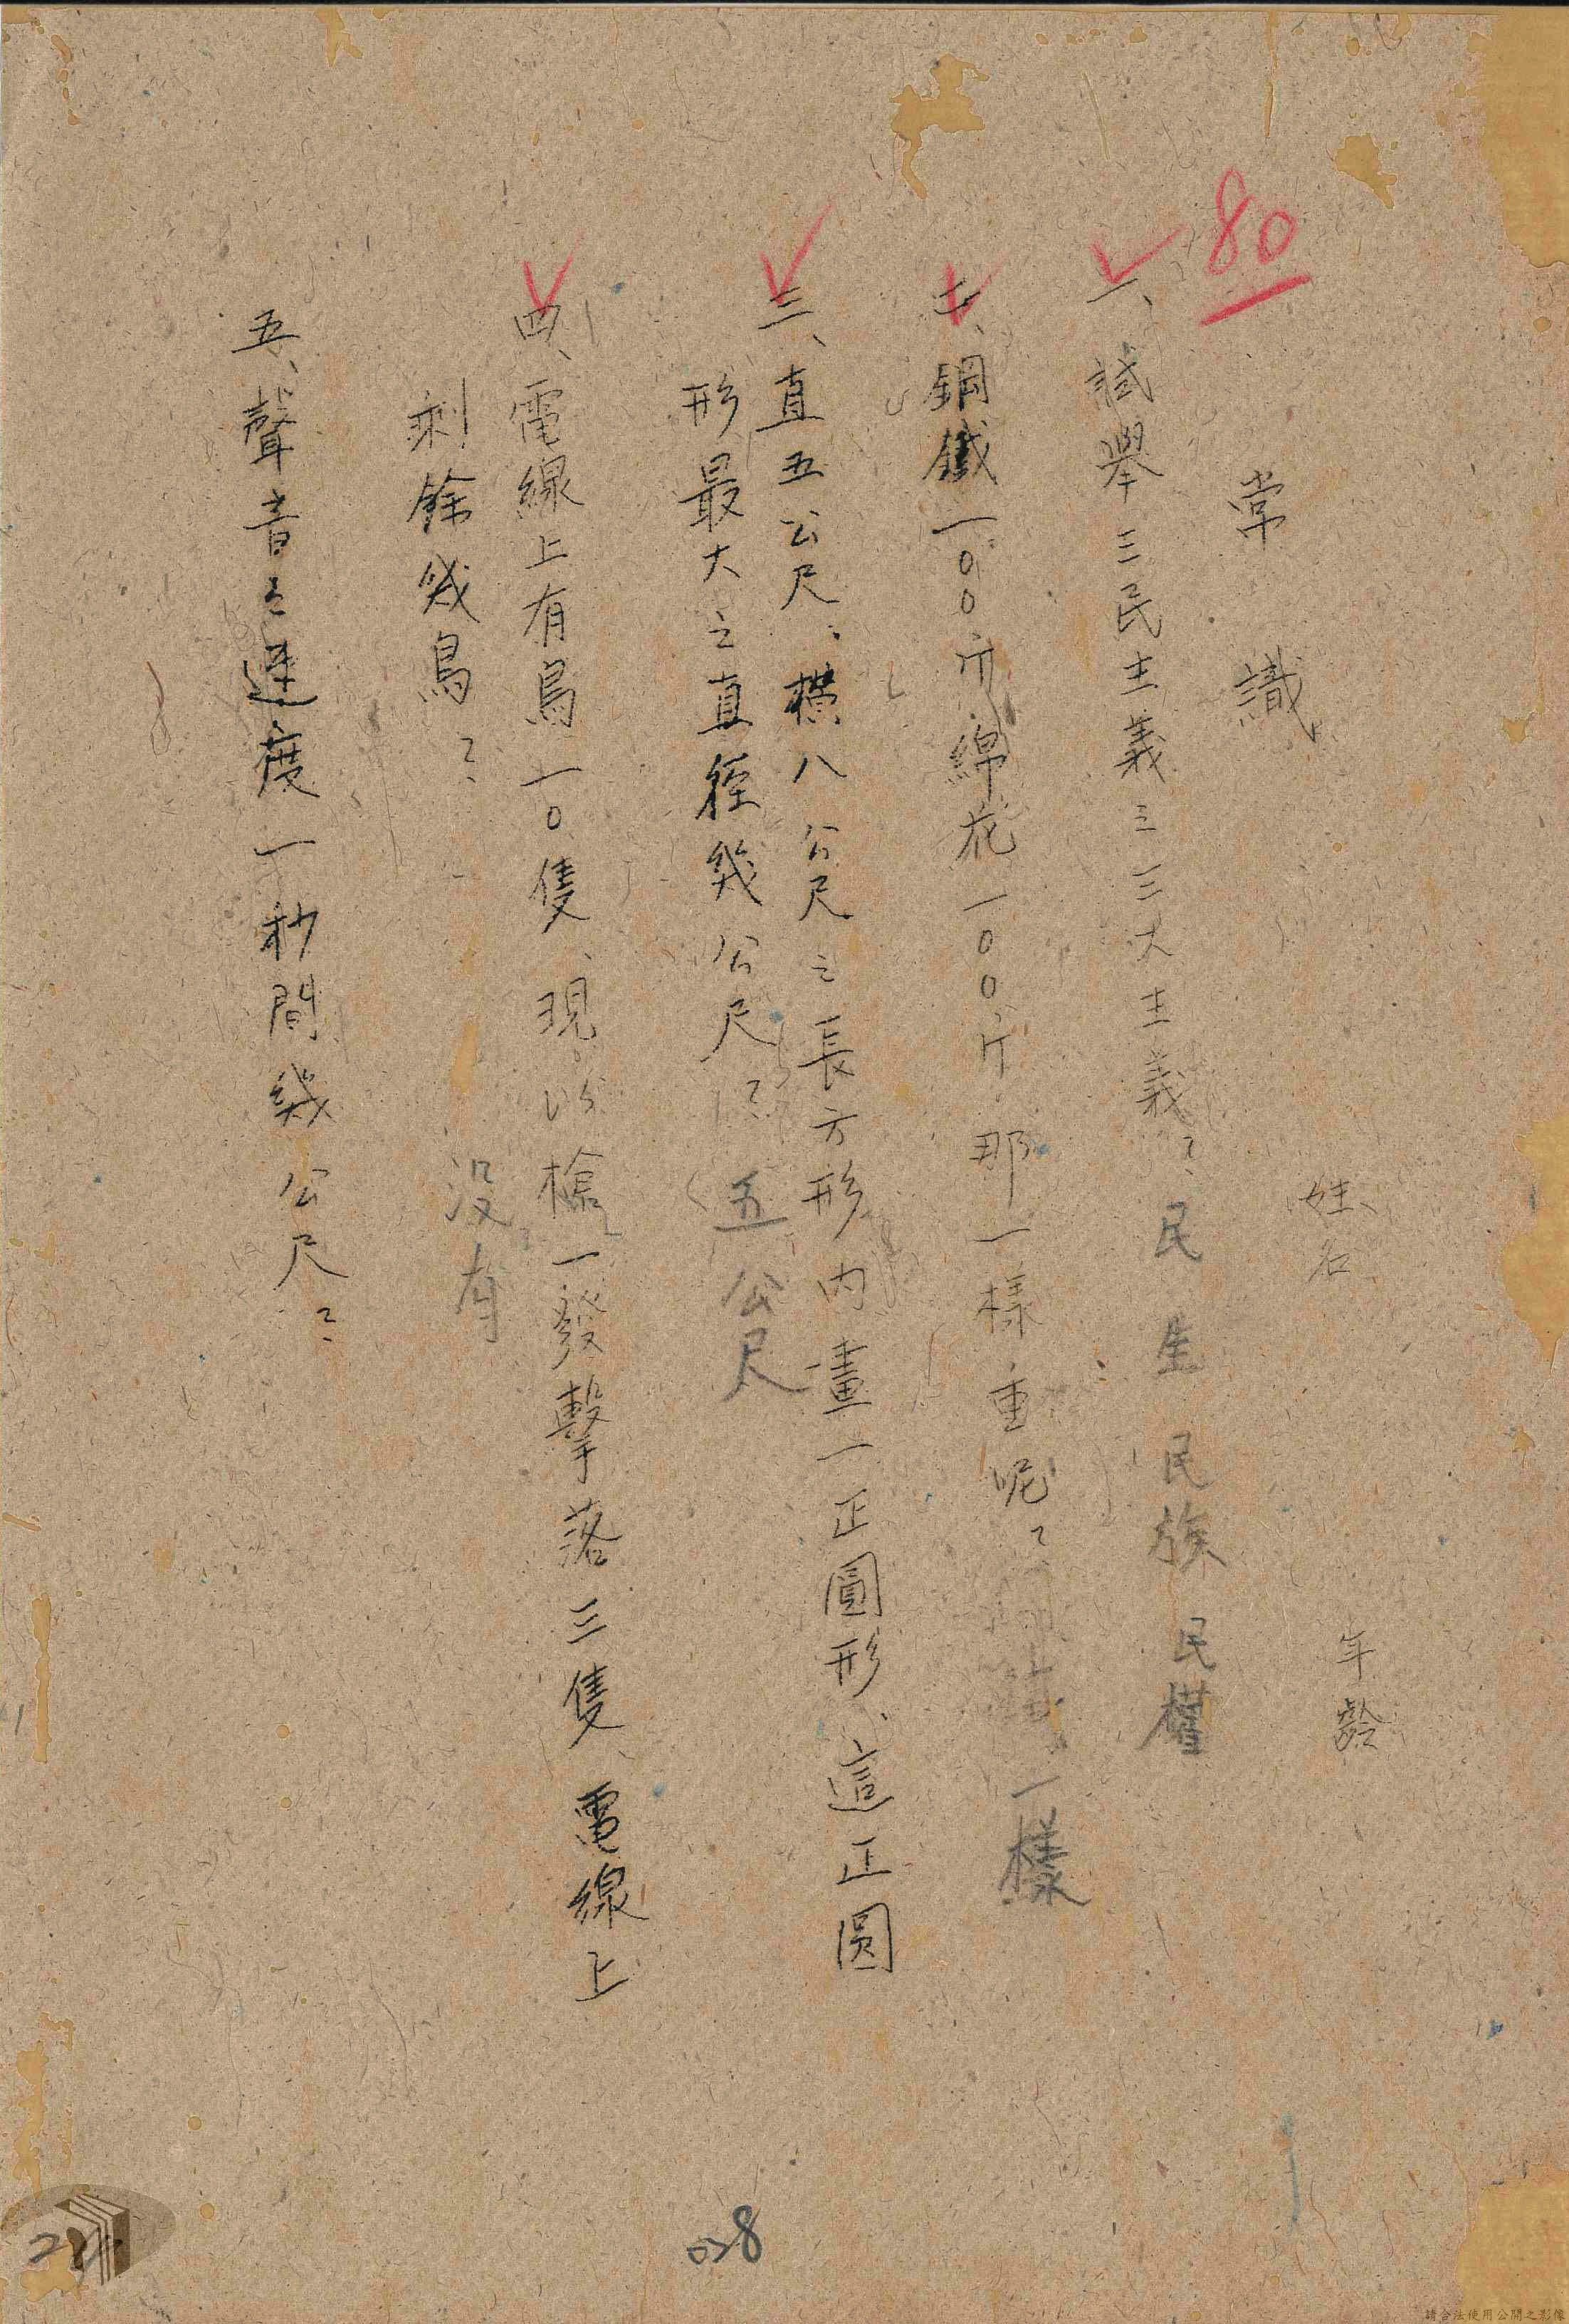 80
常識
姓名 年齡
一、試舉三民主義之三大主義? 民生 民族 民權
二、鋼鐵一〇〇斤綿花一〇〇斤.那一樣重呢? 一樣
三、直五公尺、橫八公尺之長方形內畫一正圓形、這正圓
形最大之直徑幾公尺? 五公尺
四、電線上有鳥一〇隻、現以槍一發擊落三隻、電線上
剩餘幾鳥? 没有
五、聲音之速度一秒間幾公尺?
028
請合法使用公開之影像